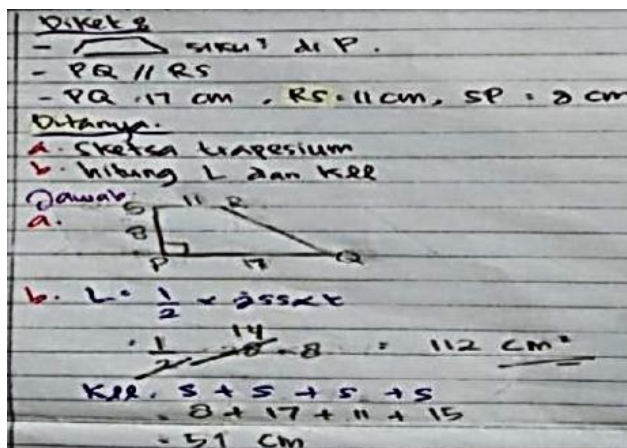 Diket :
- siku² di P.
- PQ // RS
- PQ = 17 cm, RS = 11 cm, SP = 8 cm
Ditanya.
a. Sketsa trapesium
b. hitung L dan Kll
Jawab.
a.
S 11 R
8
P 17 Q
b. L = 1/2 x ∑ss x t
= 1/2 14 . 8 = 112 cm²
Kll. s + s + s + s
= 8 + 17 + 11 + 15
= 51 cm